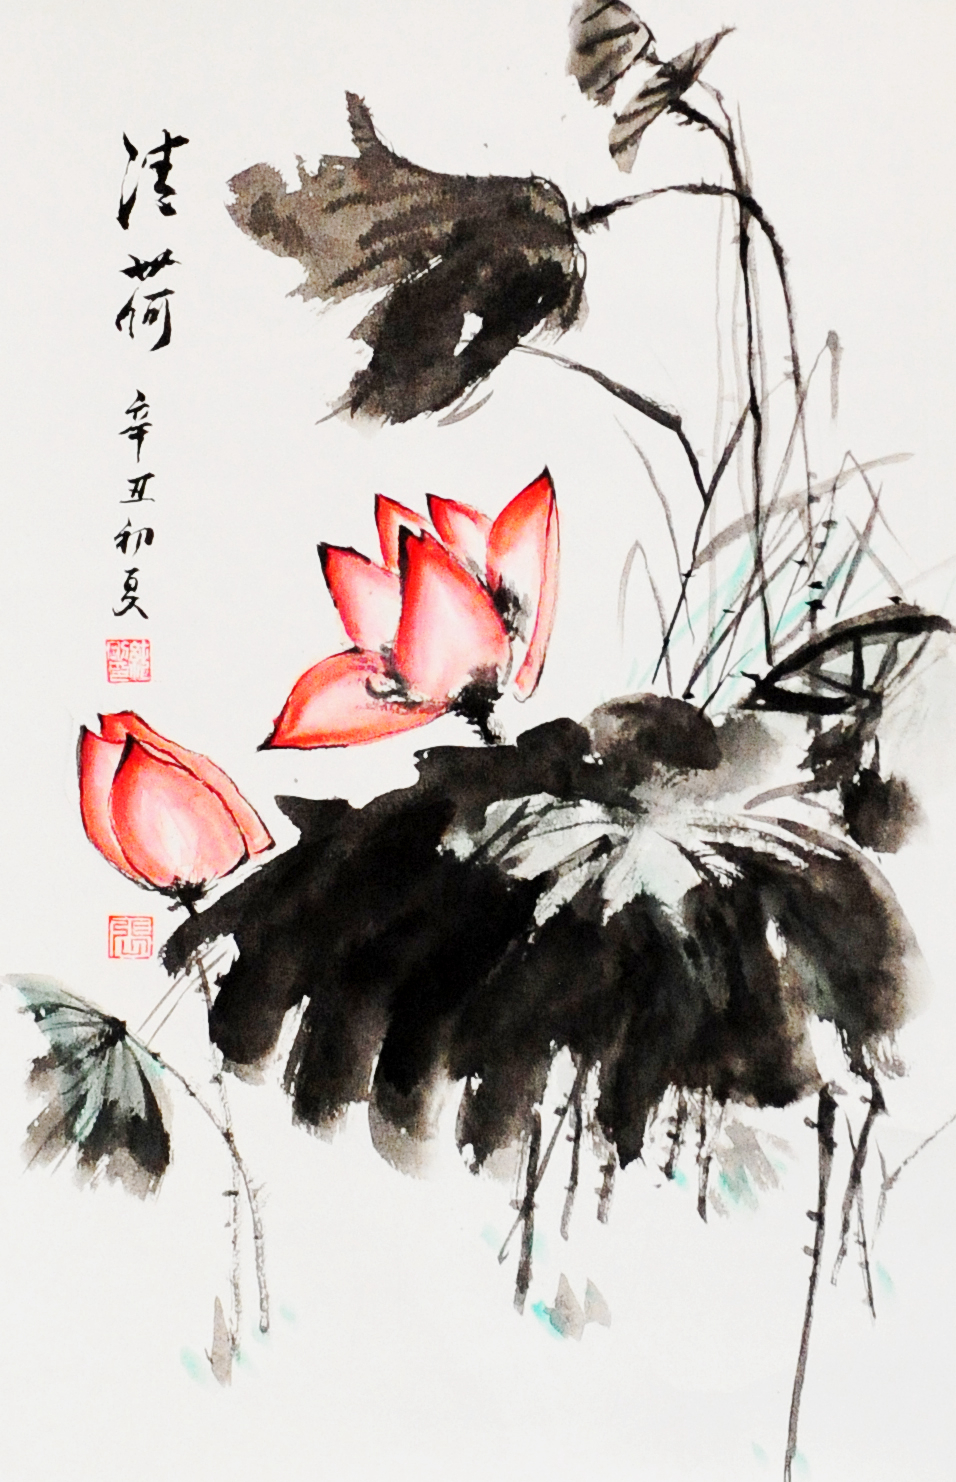 清荷
辛丑初夏
張